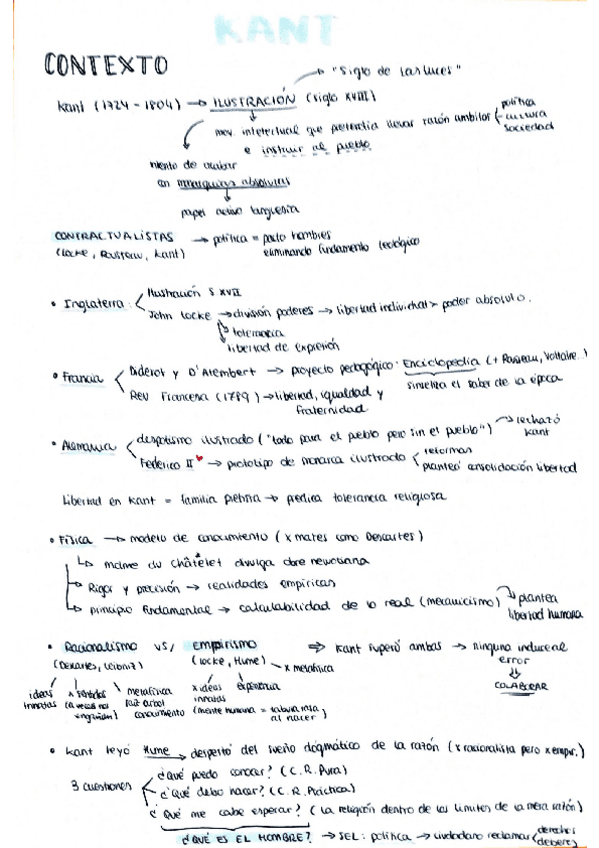 KANT
CONTEXTO
→ "Siglo de las luces"
Kant (1724 - 1804) → ILUSTRACIÓN (siglo XVIII)
mov. intelectual que pretendía llevar razón ámbitos política cultura sociedad
e instruir al pueblo
intento de acabar
con monarquías absolutas
papel activo burguesía
CONTRACTUALISTAS → política = pacto hombres
(Locke, Rousseau, Kant) eliminando fundamento teológico
• Inglaterra: Ilustración S XVII
John Locke → división poderes → libertad individual > poder absoluto.
tolerancia
libertad de expresión
• Francia Diderot y D'Alembert → proyecto pedagógico: Enciclopedia (+ Rousseau, Voltaire...)
sintetiza el saber de la época
Rev Francesa (1789) → libertad, igualdad y
fraternidad
• Alemania despotismo ilustrado ("todo para el pueblo pero sin el pueblo") → rechazó
Kant
Federico II → prototipo de monarca ilustrado reformas
planteó consolidación libertad
Libertad en Kant = familia pietista → predica tolerancia religiosa
• Física → modelo de conocimiento (x mates como Descartes)
↳ mdme du Châtelet divulga obra newtoniana
→ Rigor y precisión → realidades empíricas
→ principio fundamental → calculabilidad de lo real (mecanicismo) → plantea
libertad humana
• Racionalismo vs/ Empirismo ⇒ Kant superó ambas → ninguna induce al
(Descartes, Leibniz) (Locke, Hume) x metafísica error
⇓
COLABORAR
ideas x sentidos metafísica x ideas experiencia
innatas (a veces nos raíz árbol innatas
engañan) conocimiento (mente humana = tabula rasa
al nacer)
• Kant leyó Hume → despertó del sueño dogmático de la razón (x racionalista pero x empir.)
3 cuestiones ¿Qué puedo conocer? (C. R. Pura)
¿Qué debo hacer? (C. R. Práctica)
¿Qué me cabe esperar? (La religión dentro de los límites de la mera razón)
¿QUÉ ES EL HOMBRE? → SEL: política → ciudadano reclamar derechos
deberes